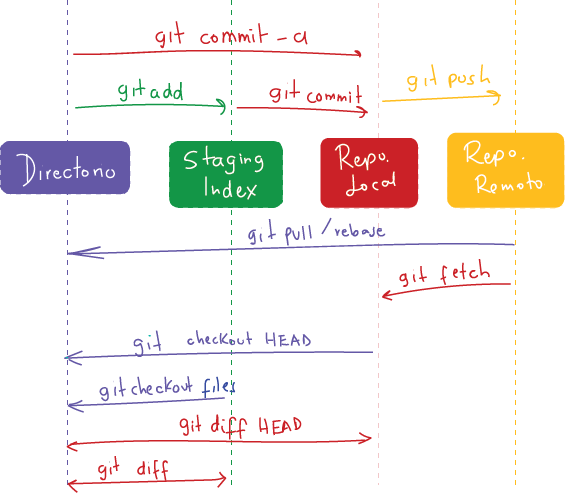 git commit -a
git add
git commit
git push
Directorio
Staging
Index
Repo.
Local
Repo.
Remoto
git pull / rebase
git fetch
git checkout HEAD
git checkout files
git diff HEAD
git diff